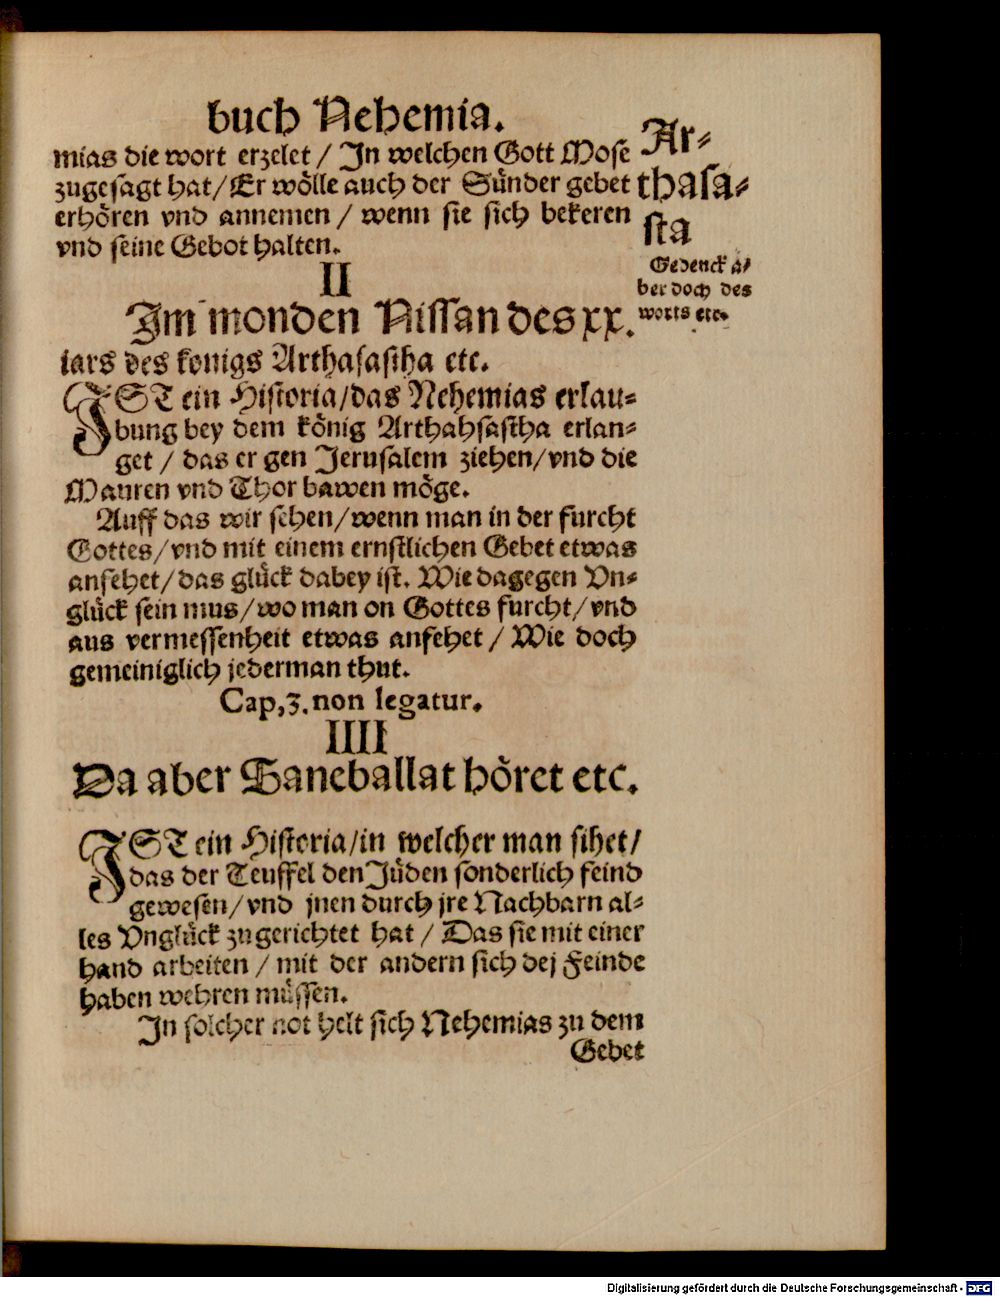 buch Nehemia.
mias die wort erzelet / In welchen Gott Mose
zugesagt hat / Er wölle auch der Sünder gebet
erhören vnd annemen / wenn sie sich bekeren
vnd seine Gebot halten.
Ar-
thasa-
sta
Gedenck a-
ber doch des
worts etc.
II
Im monden Nissan des xx.
iars des konigs Arthasastha etc.
IST ein Historia / das Nehemias erlau-
bung bey dem könig Arthahsastha erlan-
get / das er gen Jerusalem ziehen / vnd die
Mauren vnd Thor bawen möge.
Auff das wir sehen / wenn man in der furcht
Gottes / vnd mit einem ernstlichen Gebet etwas
anfehet / das glück dabey ist. Wie dagegen Vn-
glück sein mus / wo man on Gottes furcht / vnd
aus vermessenheit etwas anfehet / Wie doch
gemeiniglich jederman thut.
Cap, 3. non legatur.
IIII
Da aber Saneballat höret etc.
IST ein Historia / in welcher man sihet /
das der Teuffel den Jüden sonderlich feind
gewesen / vnd jnen durch jre Nachbarn al-
les Vnglück zugerichtet hat / Das sie mit einer
hand arbeiten / mit der andern sich dej Feinde
haben wehren müssen.
In solcher not helt sich Nehemias zu dem
Gebet
Digitalisierung gefördert durch die Deutsche Forschungsgemeinschaft - DFG